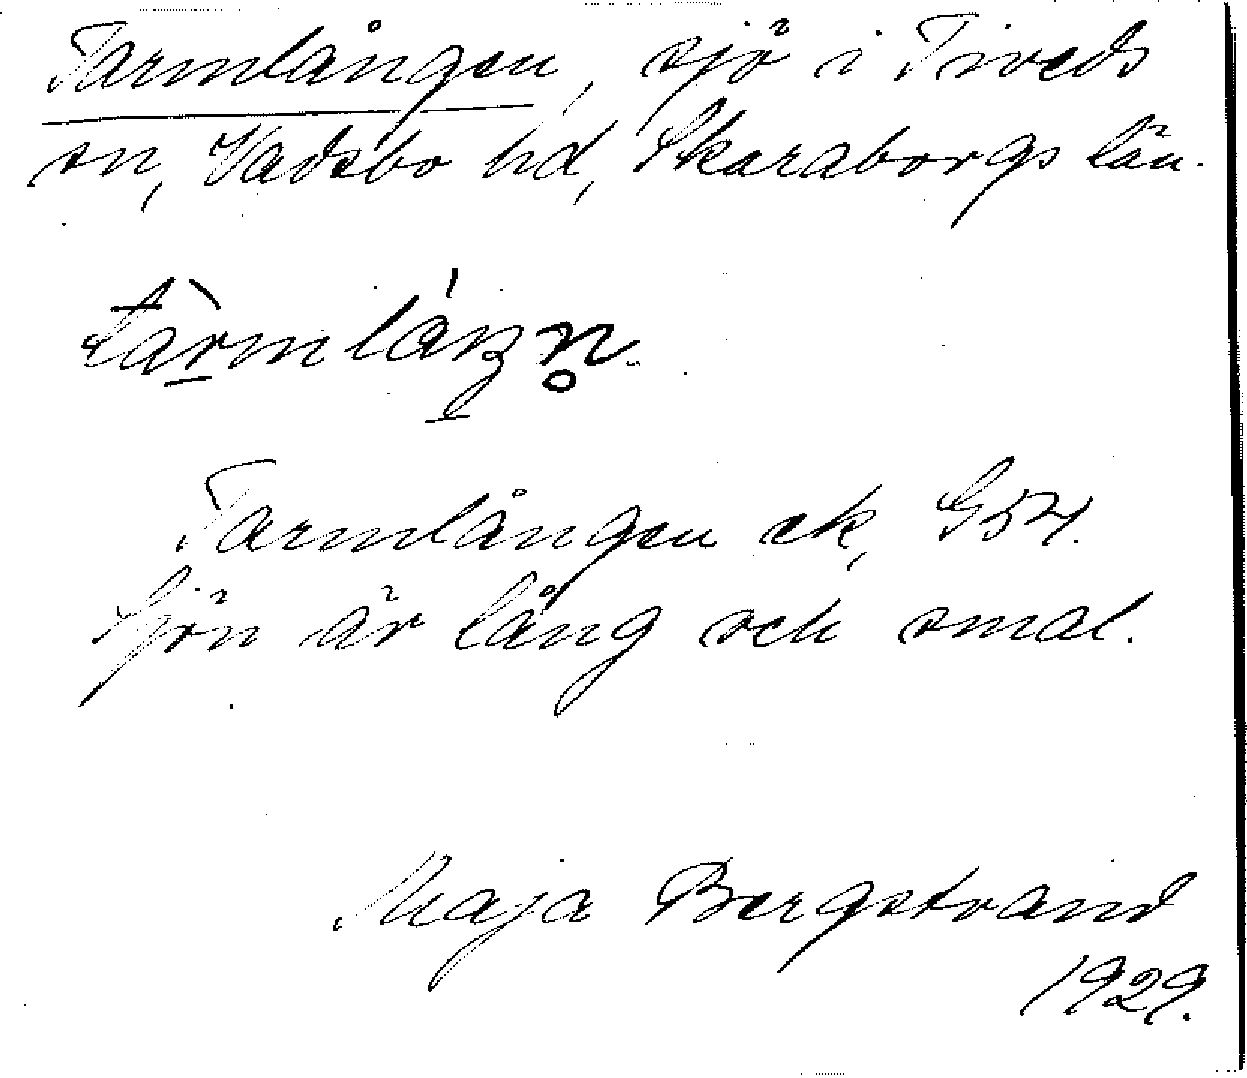 Tarmlången, sjö i Tiveds
sn, Vadsbo hd, Skaraborgs län.
Tarmlången ek, G54.
Sjön är lång och smal.
Maja Bergstrand
1929.